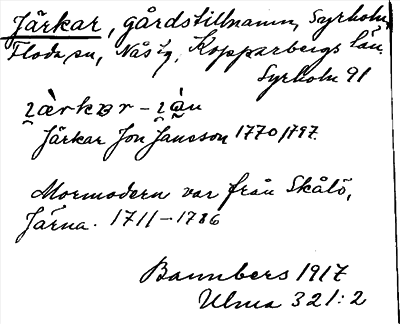 Järkar, gårdstillnamn, Syrholn,
Floda sn, Nås hg, Kopparbergs län.
Syrholn 91
Järkar Jon Jansson 1770, 1797.
Mormodern var från Skålö,
Järna. 1711-1786
Bannbers 1917
Ulma 321:2